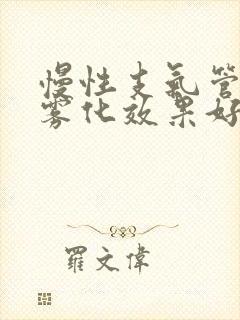 慢性支氣管
雾化效果好
羅文偉